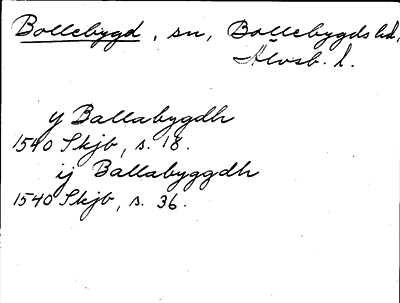 Bollebygd, sn, Bollebygds hd,
Älvsb. l.
y Ballabygdh
1540 Skjb, s. 18.
ij Ballabyggdh
1540 Skjb, s. 36.